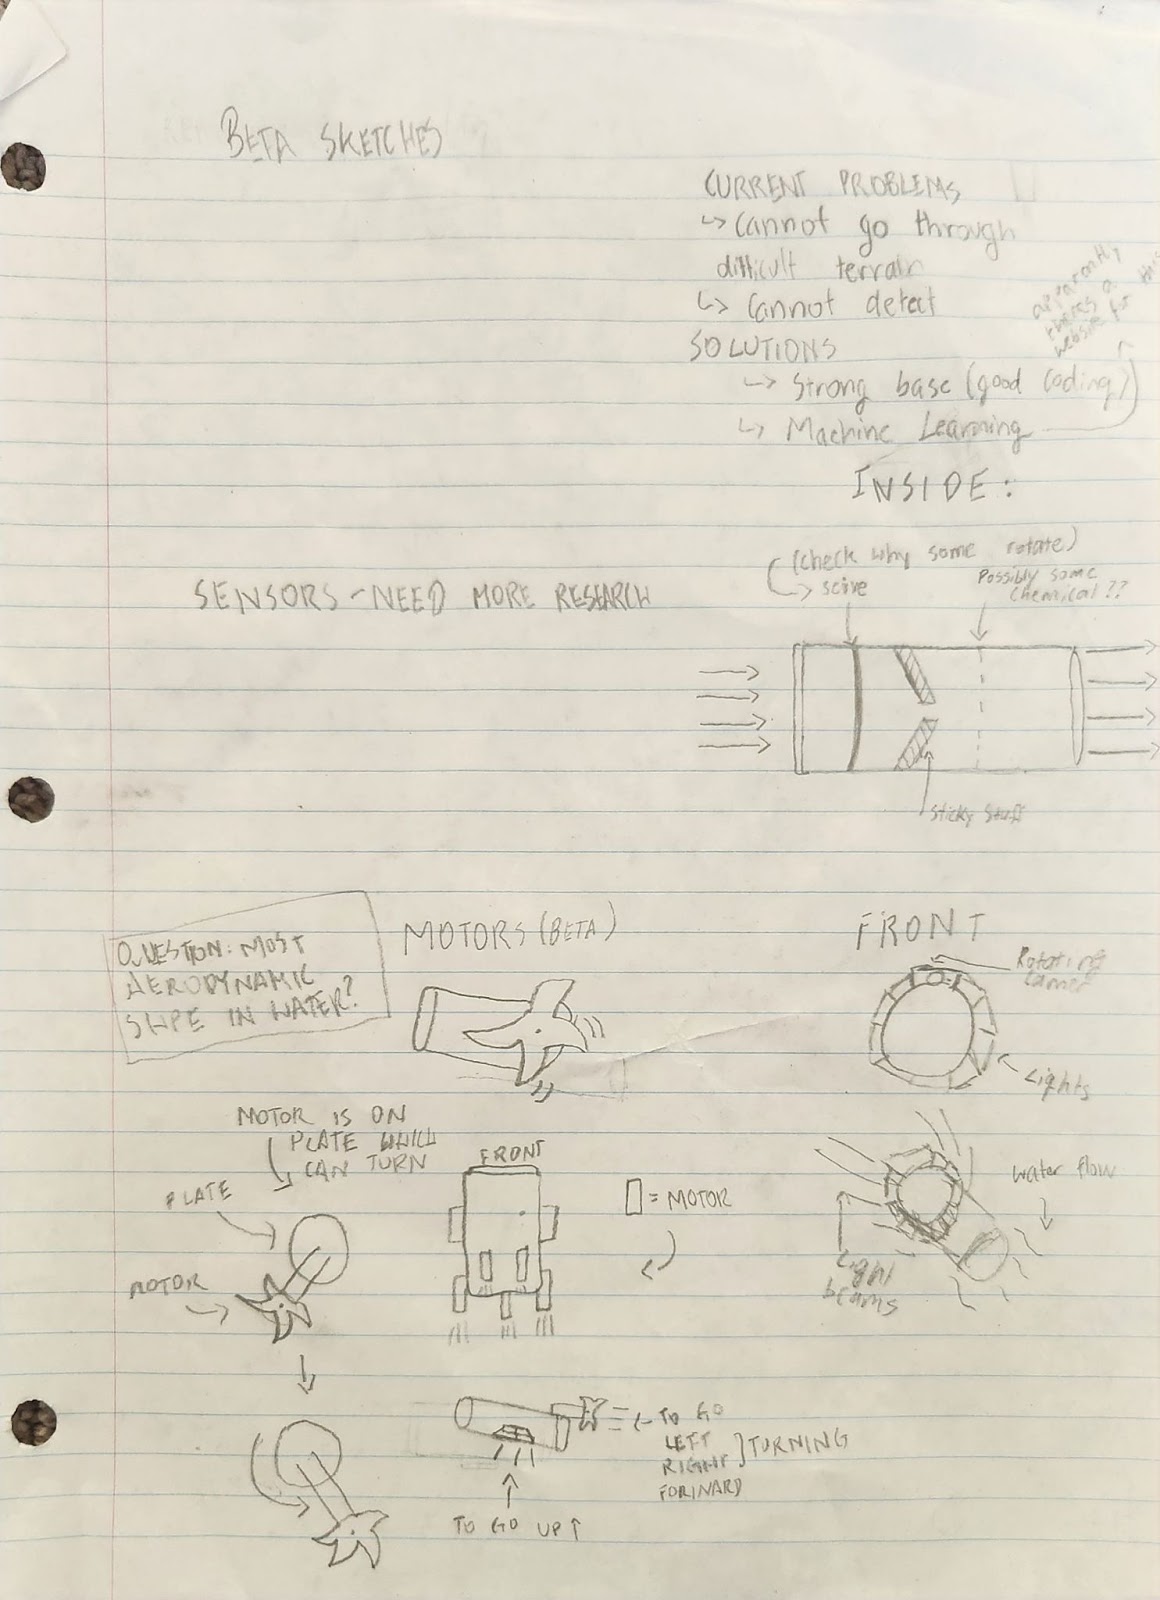 BETA SKETCHES
CURRENT PROBLEMS
↳ Cannot go through
difficult terrain
↳ Cannot detect
SOLUTIONS
↳ Strong base (good coding)
↳ Machine Learning
apparently
theres a
website for this
INSIDE:
(check why some rotate)
→ seive
Possibly some
chemical??
SENSORS - NEED MORE RESEARCH
sticky stuff
QUESTION: MOST
AERODYNAMIC
SHPE IN WATER?
MOTORS (BETA)
FRONT
Rotating
camera
Lights
MOTOR IS ON
PLATE WHICH
CAN TURN
PLATE
MOTOR
FRONT
= MOTOR
water flow
Light
beams
← TO GO
LEFT
RIGHT } TURNING
FORWARD
TO GO UP ↑